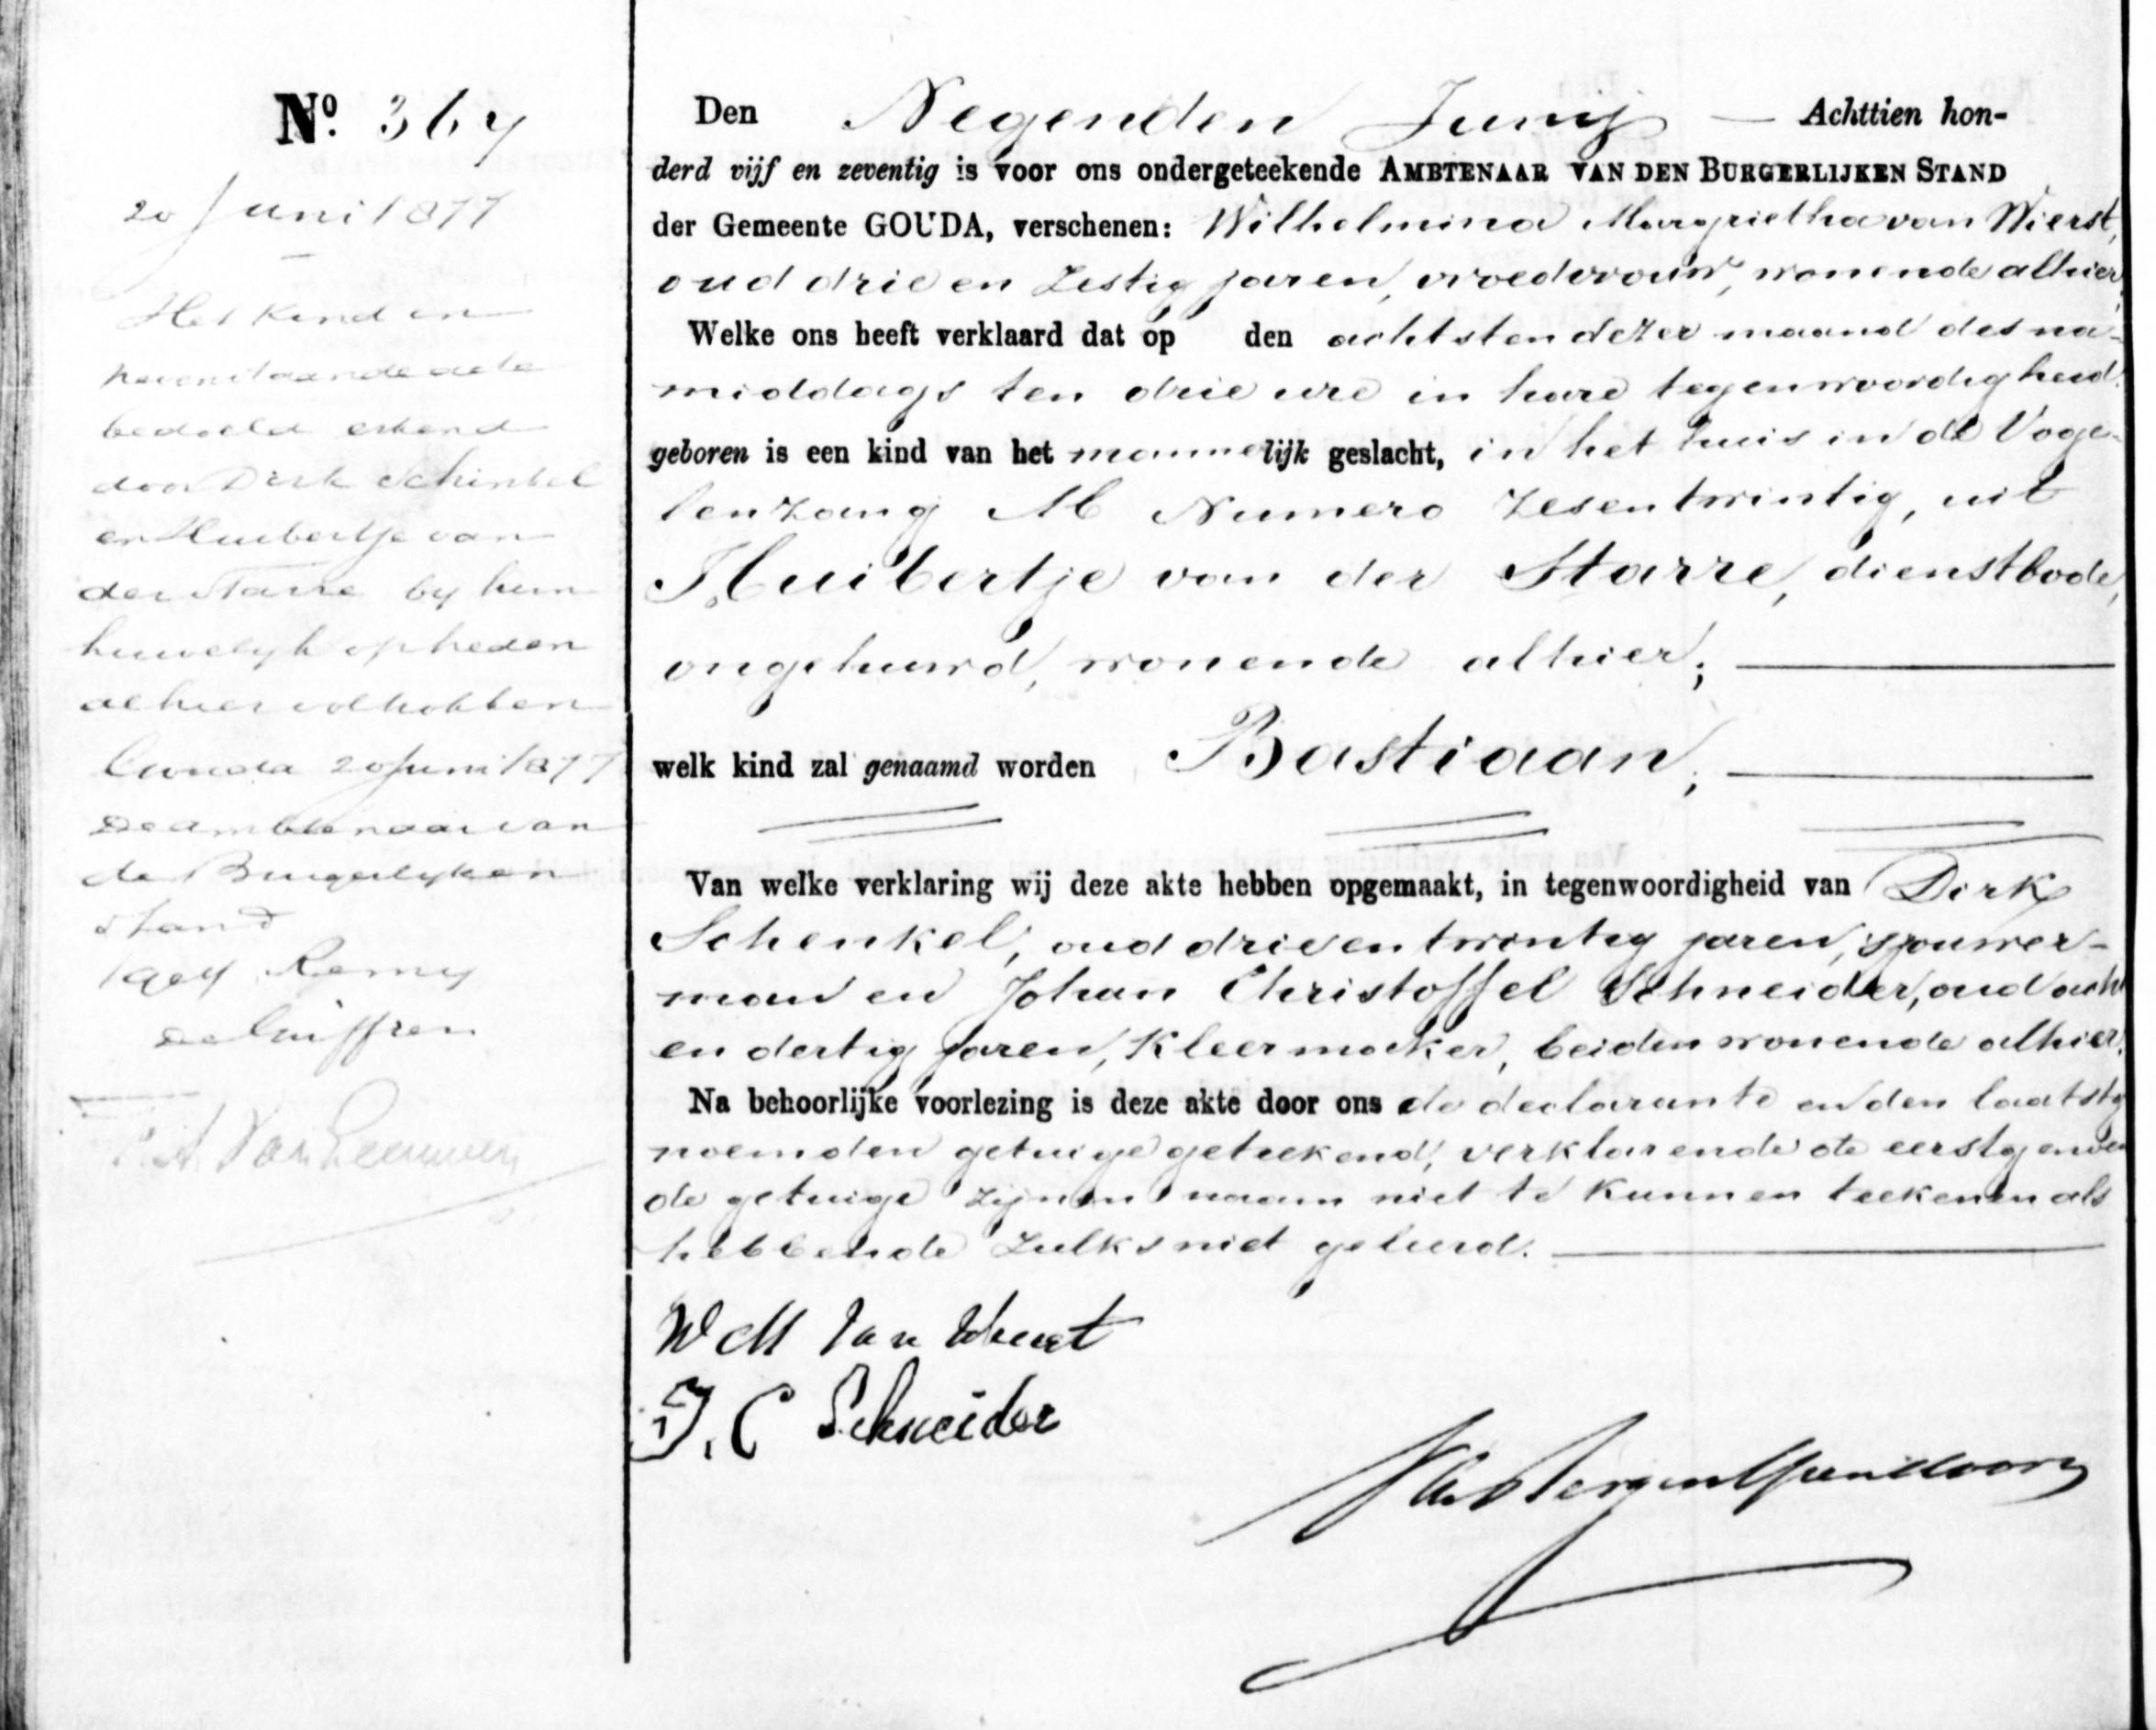 No. 364
20 Juni 1877
Het kind in
nevenstaande acte
bedoeld erkend
door Dirk Schinkel
en Huibertje van
der Starre by hun
huwelyk op heden
alhier voltrokken
Gouda 20 Juni 1877
De ambtenaar van
den Burgerlyken
stand
Remy
van Leeuwen
Den Negenden Junij — Achttien hon-
derd vijf en zeventig is voor ons ondergeteekende AMBTENAAR VAN DEN BURGERLIJKEN STAND
der Gemeente GOUDA, verschenen: Wilhelmina Margrietha van Wierst,
oud drie en Zestig jaren, vroedvrouw, wonende alhier,
Welke ons heeft verklaard dat op den achtsten dezer maand des na-
middags ten drie ure in hare tegenwoordigheid
geboren is een kind van het mannelijk geslacht, in het huis in de Voge-
lenzang M Numero Zesentwintig, uit
Huibertje van der Starre, dienstbode,
ongehuwd, wonende alhier;
welk kind zal genaamd worden Bastiaan;
Van welke verklaring wij deze akte hebben opgemaakt, in tegenwoordigheid van Dirk
Schenkel, oud drieentwintig jaren, sjouwer-
man en Johan Christoffel Schneider, oud acht
en dertig jaren, Kleermaker, beiden wonende alhier.
Na behoorlijke voorlezing is deze akte door ons de declarante en den laatstge
noemden getuige geteekend, verklarende de eerstgenoem
de getuige zijnen naam niet te kunnen teekenen als
hebbende zulks niet geleerd.
W M Van Wierst
J. C Schneider